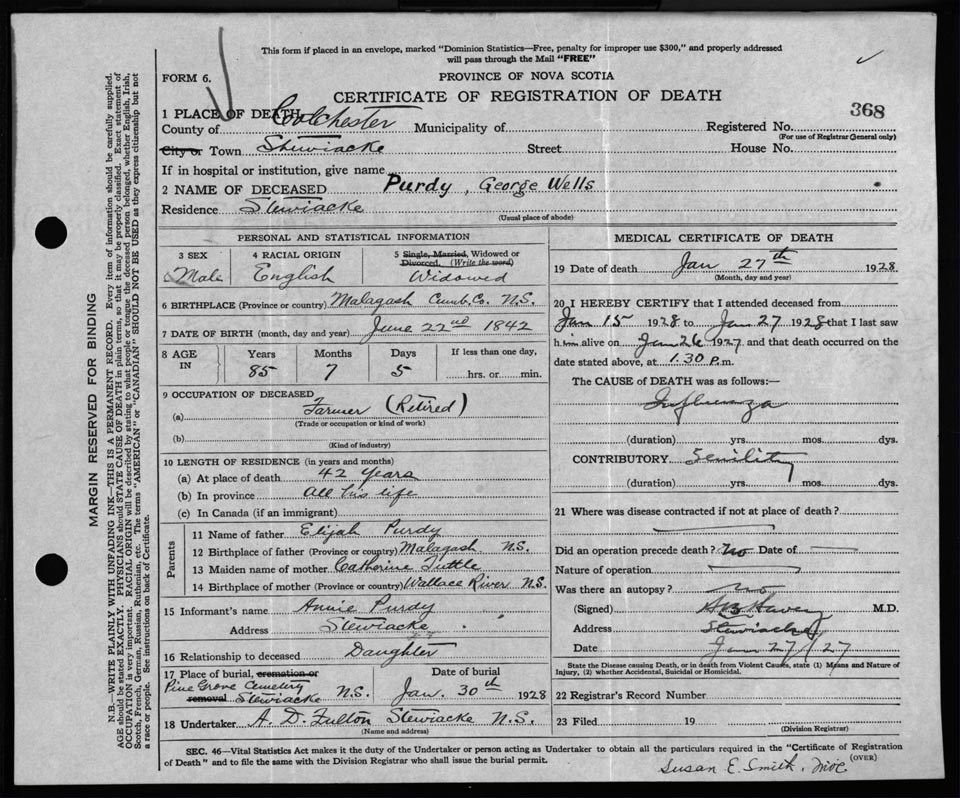 This form if placed in an envelope, marked "Dominion Statistics—Free, penalty for improper use $300," and properly addressed
will pass through the Mail "FREE"
FORM 6.
PROVINCE OF NOVA SCOTIA
CERTIFICATE OF REGISTRATION OF DEATH
368
1 PLACE OF DEATH
County of Colchester Municipality of Registered No.
(For use of Registrar General only)
City or Town Stewiacke Street House No.
If in hospital or institution, give name
2 NAME OF DECEASED Purdy, George Wells
Residence Stewiacke
(Usual place of abode)
PERSONAL AND STATISTICAL INFORMATION
3 SEX 4 RACIAL ORIGIN 5 Single, Married, Widowed or
Divorced, (Write the word)
Male English Widowed
6 BIRTHPLACE (Province or country) Malagash Cumb. Co. N.S.
7 DATE OF BIRTH (month, day and year) June 22nd 1842
8 AGE IN Years Months Days If less than one day,
85 7 5 hrs. or min.
9 OCCUPATION OF DECEASED
(a) Farmer (Retired)
(Trade or occupation or kind of work)
(b)
(Kind of industry)
10 LENGTH OF RESIDENCE (in years and months)
(a) At place of death 42 years
(b) In province all his life
(c) In Canada (if an immigrant)
Parents
11 Name of father Elijah Purdy
12 Birthplace of father (Province or country) Malagash N.S.
13 Maiden name of mother Catherine Tuttle
14 Birthplace of mother (Province or country) Wallace River N.S.
15 Informant's name Annie Purdy
Address Stewiacke
16 Relationship to deceased Daughter
17 Place of burial, cremation or Date of burial
Pine Grove Cemetery
removal Stewiacke N.S. Jan. 30th 1928
18 Undertaker A. D. Fulton Stewiacke N.S.
(Name and address)
MEDICAL CERTIFICATE OF DEATH
19 Date of death Jan 27th 1928
(Month, day and year)
20 I HEREBY CERTIFY that I attended deceased from
Jan 15 1928 to Jan 27 1928 that I last saw
h im alive on Jan 26 1927 and that death occurred on the
date stated above, at 1.30 P.m.
The CAUSE of DEATH was as follows:—
Influenza
(duration) yrs. mos. dys.
CONTRIBUTORY Senility
(duration) yrs. mos. dys.
21 Where was disease contracted if not at place of death?
Did an operation precede death? no Date of
Nature of operation
Was there an autopsy? no
(Signed) M.D.
Address Stewiacke
Date Jan 27/27
State the Disease causing Death, or in death from Violent Causes, state (1) Means and Nature of
Injury, (2) whether Accidental, Suicidal or Homicidal.
22 Registrar's Record Number
23 Filed 19
(Division Registrar)
SEC. 46—Vital Statistics Act makes it the duty of the Undertaker or person acting as Undertaker to obtain all the particulars required in the "Certificate of Registration
of Death" and to file the same with the Division Registrar who shall issue the burial permit.
(OVER)
Susan E. Smith,
MARGIN RESERVED FOR BINDING
N.B.—WRITE PLAINLY WITH UNFADING INK—THIS IS A PERMANENT RECORD. Every item of information should be carefully supplied.
AGE should be stated EXACTLY. PHYSICIANS should STATE CAUSE OF DEATH in plain terms, so that it may be properly classified. Exact statement of
OCCUPATION is very important. RACIAL ORIGIN will be described by stating to what people or tongue the deceased person belonged, whether English, Irish,
Scotch, French, German, Russian, Ruthenian, etc. The terms "AMERICAN" or "CANADIAN" SHOULD NOT BE USED as they express citizenship but not
a race or people. See instructions on back of Certificate.